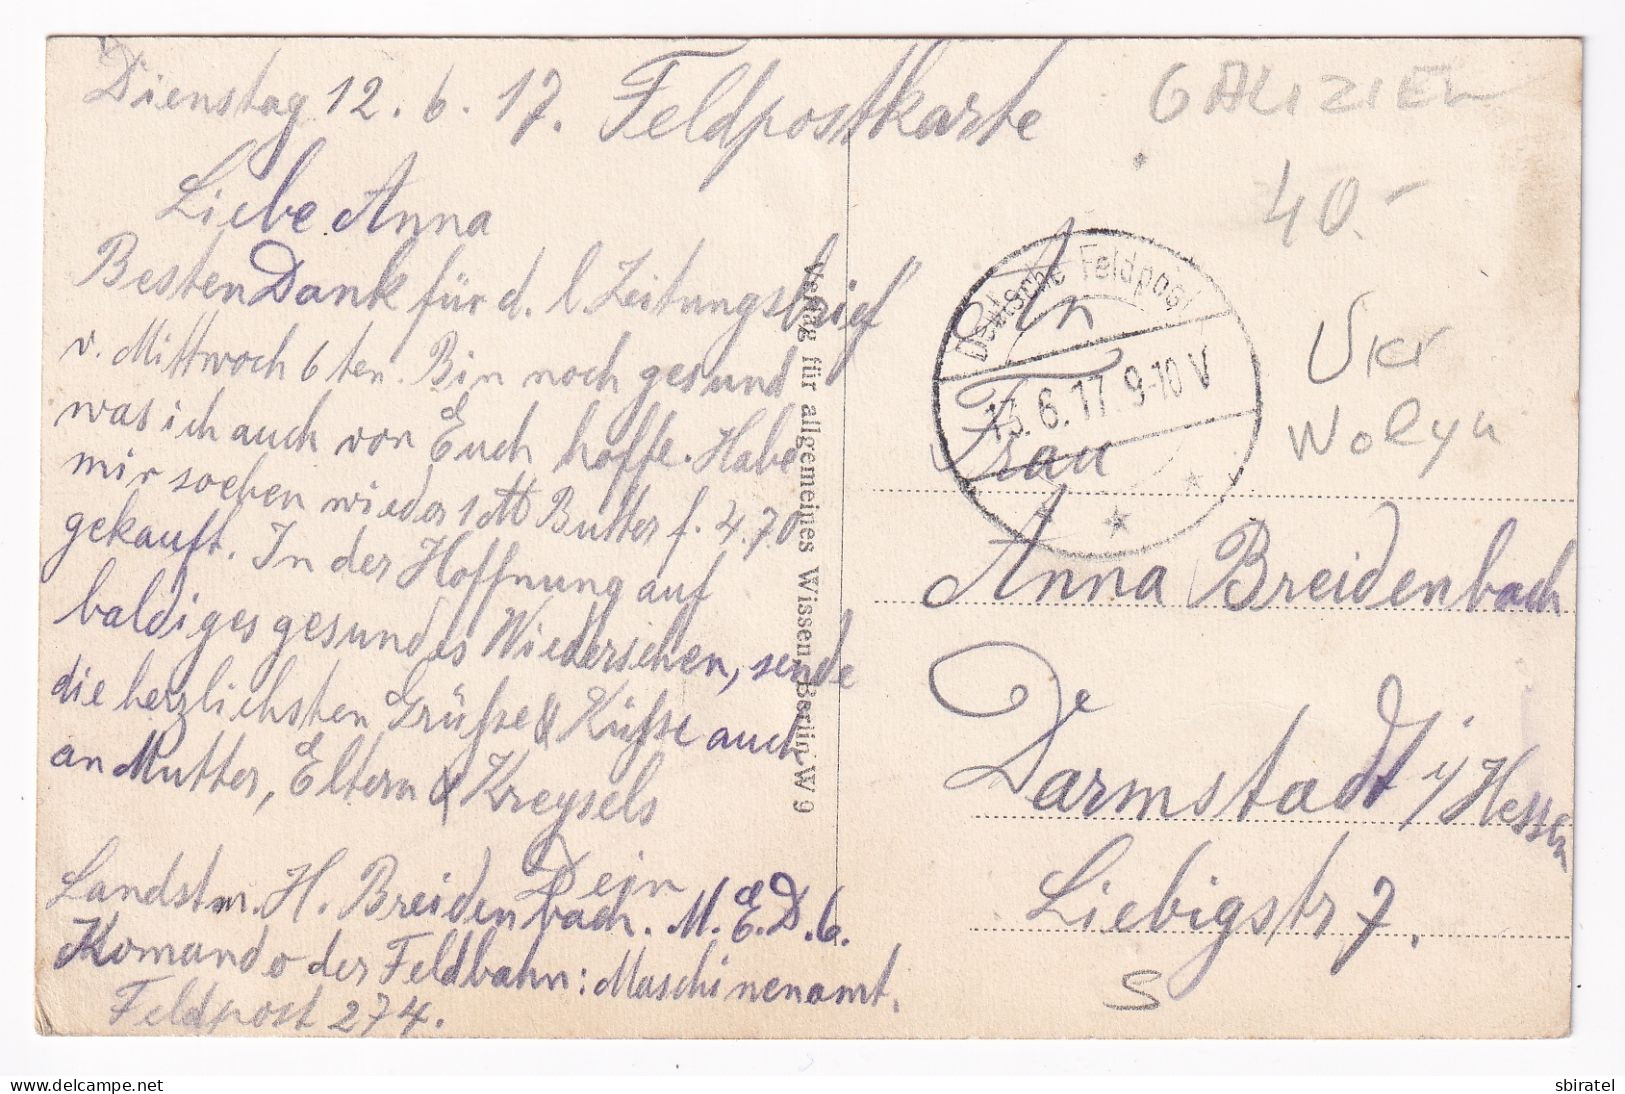 Dienstag 12. 6. 17. Feldpostkarte
Liebe Anna
Besten Dank für d. l. Zeitungsbrief
v. Mittwoch 6 ten. Bin noch gesund
was ich auch von Euch hoffe. Habe
mir soeben wieder 1 ℔ Butter f. 4.70
gekauft. In der Hoffnung auf
baldiges gesundes Wiedersehen, sende
die herzlichsten Grüsse & Küsse auch
an Mutter, Eltern & Kreysels
Dein
Landstm. H. Breidenbach. M.E.D.6.
Komando der Feldbahn: Maschinenamt.
Feldpost 274.
Verlag für allgemeines Wissen, Berlin W 9
GALIZIEN
40.-
Deutsche Feldpost
13.6.17. 9-10 V
Ukr
Wolyn
An
Frau
Anna Breidenbach
Darmstadt i/Hessen
Liebigstr 7.
S
sbiratel